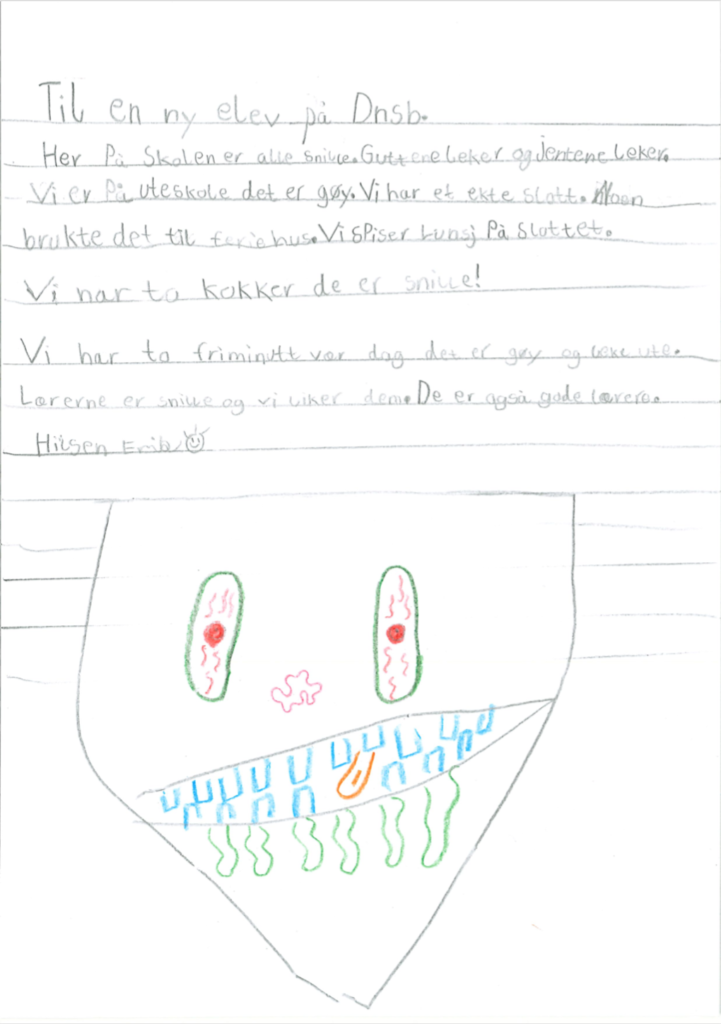 Til en ny elev på Dnsb.
Her På Skolen er alle snille. Guttene leker og jentene leker.
Vi er På uteskole det er gøy. Vi har et ekte slott. Noen
brukte det til feriehus. Vi SPiser Lunsj På slottet.
Vi har to kokker de er snille!
Vi har to friminutt var dag det er gøy og leke ute.
Lærerne er snille og vi liker dem. De er også gode lærere.
Hilsen Erik